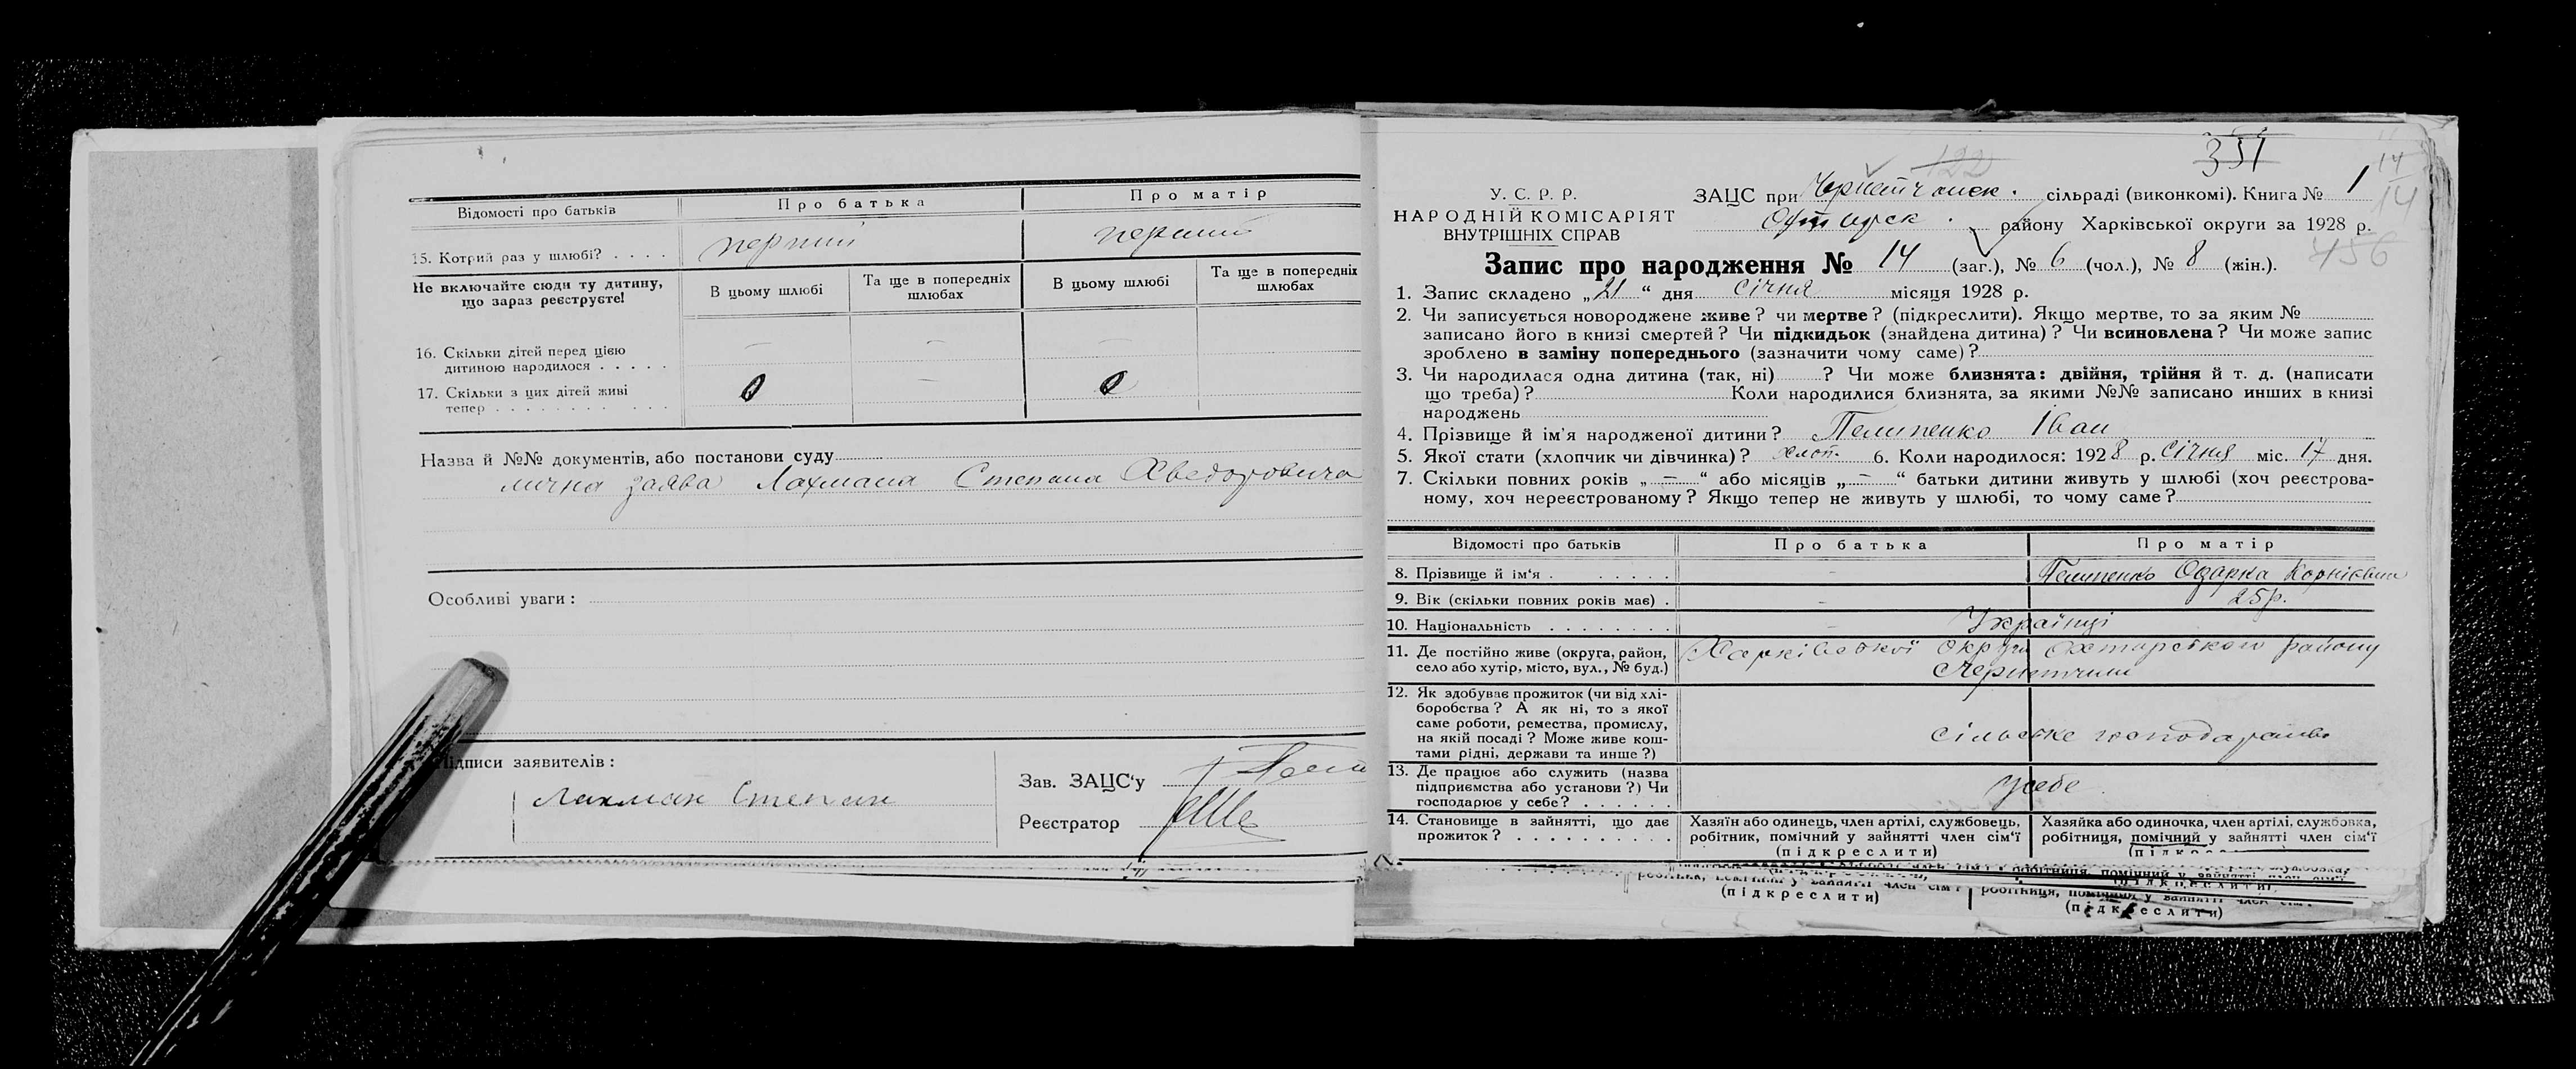 Відомості про батьків
Про батька
Про матір
15. Котрий раз у шлюбі? . . . .
перший
перший
Не включайте сюди ту дитину,
що зараз реєструєте!
В цьому шлюбі
Та ще в попередніх
шлюбах
В цьому шлюбі
Та ще в попередніх
шлюбах
16. Скільки дітей перед цією
дитиною народилося . . . . .
— — —
17. Скільки з цих дітей живі
тепер . . . . . . . . . . .
0 — 0
Назва й №№ документів, або постанови суду
лична заява Лахмана Степана Хведоровича
Особливі уваги:
Підписи заявителів:
Лахман Степан
Зав. ЗАЦС'у
Реєстратор
351
122
14
14
456
У. С. Р. Р.
НАРОДНІЙ КОМІСАРІЯТ
ВНУТРІШНІХ СПРАВ
ЗАЦС при Чернетчанск. сільраді (виконкомі). Книга № 1
Охтирск. району Харківської округи за 1928 р.
Запис про народження № 14 (заг.), № 6 (чол.), № 8 (жін.).
1. Запис складено „21“ дня січня місяця 1928 р.
2. Чи записується новороджене живе? чи мертве? (підкреслити). Якщо мертве, то за яким №
записано його в книзі смертей? Чи підкидьок (знайдена дитина)? Чи всиновлена? Чи може запис
зроблено в заміну попереднього (зазначити чому саме)?
3. Чи народилася одна дитина (так, ні) ? Чи може близнята: двійня, трійня й т. д. (написати
що треба)? Коли народилися близнята, за якими №№ записано инших в книзі
народжень
4. Прізвище й ім'я народженої дитини? Пелипенко Іван
5. Якої стати (хлопчик чи дівчинка)? хлоп. 6. Коли народилося: 1928 р. січня міс. 17 дня.
7. Скільки повних років „—“ або місяців „—“ батьки дитини живуть у шлюбі (хоч реєстрова-
ному, хоч нереєстрованому? Якщо тепер не живуть у шлюбі, то чому саме?
Відомості про батьків
Про батька
Про матір
8. Прізвище й ім'я . . . . . .
—
Пелипенко Одарка Корніївна
9. Вік (скільки повних років має) .
—
25 р.
10. Національність . . . . . . . .
—
Українці
11. Де постійно живе (округа, район,
село або хутір, місто, вул., № буд.)
Харківської округи Охтирського району
Чернетчини
12. Як здобуває прожиток (чи від хлі-
боробства? А як ні, то з якої
саме роботи, ремества, промислу,
на якій посаді? Може живе кош-
тами рідні, держави та инше?)
сільське господарство
13. Де працює або служить (назва
підприємства або установи?) Чи
господарює у себе? . . . . . .
у себе
14. Становище в зайнятті, що дає
прожиток? . . . . . . . . . .
Хазяїн або одинець, член артілі, службовець,
робітник, помічний у зайнятті член сім'ї
(підкреслити)
Хазяйка або одиночка, член артілі, службовка,
робітниця, помічний у зайнятті член сім'ї
(підкреслити)
(підкреслити)
робітниця, помічний у зайнятті член сім'ї
(підкреслити)